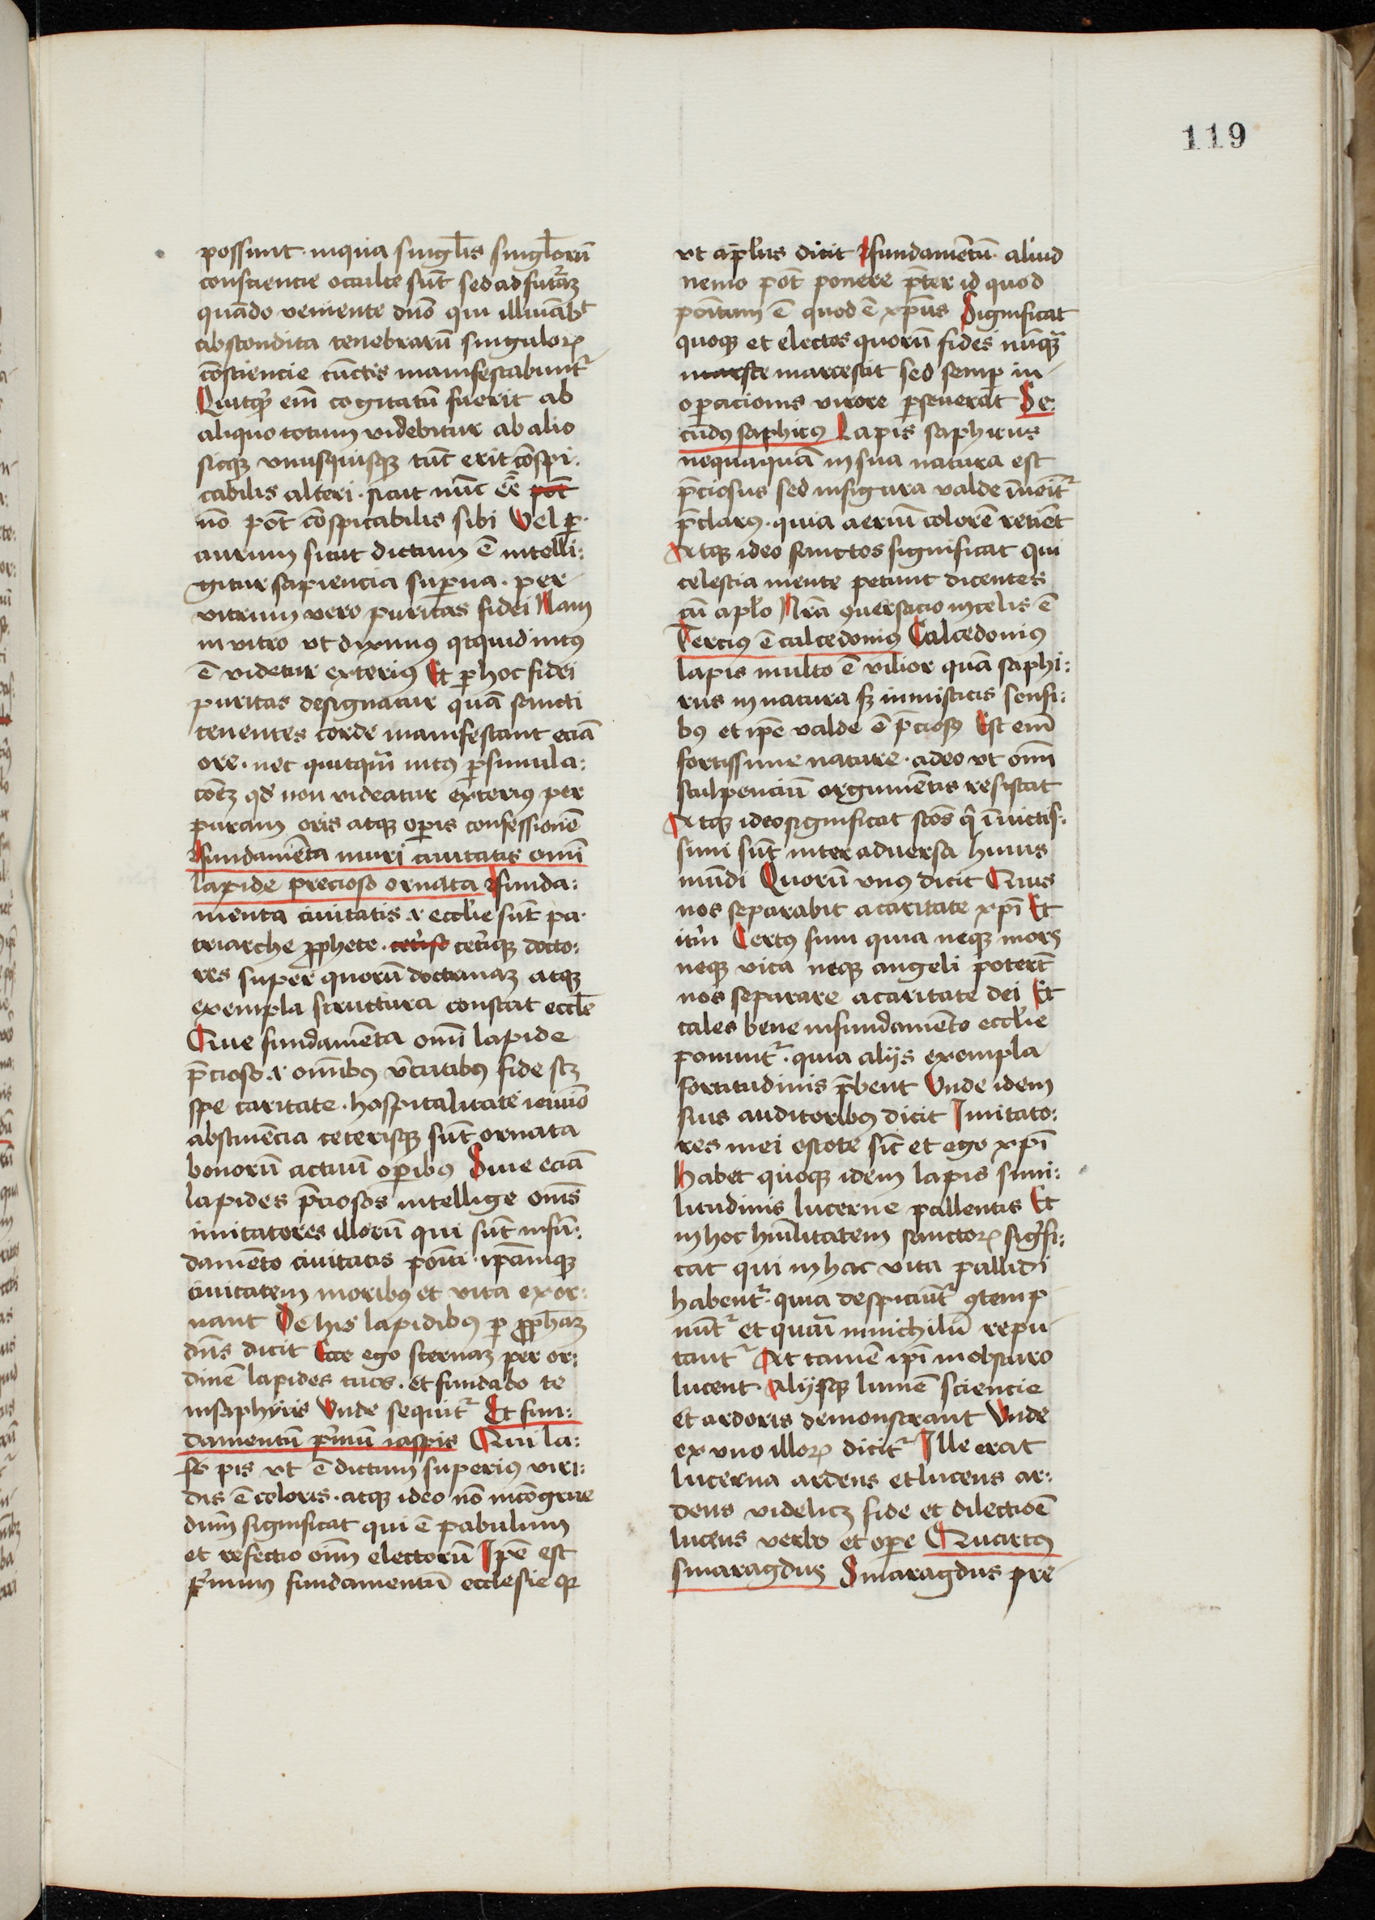 119
possunt · in qua singl̄is singl̄orū
consciencie occulte sūt sed ad futurā
quādo veniente dn̄o qui illuīabit
abscondita tenebrarū singulorꝝ
cōsciencie cūctis manifestabuntr
Quitqͥd em̄ cogitatū fuerit ab
aliquo totum videbitur ab alio
sicqꝫ vnusquisqꝫ tūc erit cōspi:
cabilis alteri · sicut nūc eē̄ pōt
nō pōt cōspicabilis sibi Vel ꝑ
aurum sicut dictum ē intelli:
gitur sapiencia suꝑna · per
vitrum vero puritas fidei Nam
in vitro vt diximꝰ qͥtquid intꝰ
ē videtur exteriꝰ Et ꝑ hoc fidei
puritas designatur quā sancti
tenentes corde manifestant eciā
ore · nec quitqͣm intꝰ ꝑ simula:
cōeꝫ qd̄ non videatur exterius per
puram oris atqꝫ oꝑis confessionē
ffundamēta muri ciuitatis omī
lapide precioso ornata ffunda:
menta ciuitatis .i. eccl̄ie sūt pa·
triarche ꝓphete · ceteriqꝫ docto:
res super quorū doctrinaꝫ atqꝫ
exempla structura constat eccl̄e
Que fundamēta omī lapide
p̄cioso .i. omībꝰ v̄tutibꝰ fide scꝫ
spe caritate · hospitalitate ieiunio
abstinēcia ceterisqꝫ sūt ornata
bonorū actuū oꝑibꝰ Siue eciā
lapides p̄ciosos intellige om̄s
imitatores illorū qui sūt in fū:
damēto ciuitatis poīti · ip̄amqꝫ
ciuitatem moribꝰ et vita exor:
nant De his lapidibꝰ ꝑ ꝓphetaꝫ
dn̄s dicit Ecce ego sternaꝫ per or:
dinē lapides tuos · et fundabo te
in saphyris Vnde sequitr Et fun:
damentū p̄mū iaspis Qui la:
pis vt ē dictum superius viri:
dis ē coloris · atqꝫ ideo nō incōgrue
dn̄m significat qui ē pabulum
et refectio oīm electorū Ip̄e est
p̄mum fundamentū ecclesie qꝛ
vt apl̄us dicit ffundamētū aliud
nemo pōt ponere p̄ter id quod
poītum ē quod ē xp̄us Significat
quoqꝫ et electos quorū fides nūqͣꝫ
marsce marcescit sed semꝑ in
oꝑacionis virore ꝑseuerat Se:
cūdꝰ saphirꝰ Lapis saphirus
nequaquā in sua natura est
p̄ciosus sed in figura valde inueītr
p̄clarꝰ · quia aeriū colorē retinet
Atqꝫ ideo sanctos significat qui
celestia mente petunt dicentes
cū apl̄o Nr̄a ꝯuersacio in celis ē
Terciꝰ ē calcedoniꝰ Calcedoniꝰ
lapis multo ē vilior quā saphi:
rus in natura sꝫ in misticis sensi:
bꝰ et ip̄e valde ē p̄ciosꝰ Est em̄
fortissime nature · adeo vt omī
sculpenciū argumētis resistat
Atqꝫ ideo significat scōs qͥ inuictis:
simi sūt inter aduersa huius
mūdi Quorū vnꝰ dicit Quis
nos separabit a caritate xp̄i Et
itͤm Certꝰ sum quia neqꝫ mors
neqꝫ vita neqꝫ angeli poterūt
nos separare a caritate dei Et
tales bene in fundamēto eccl̄ie
ponuntr · quia alijs exempla
fortitudinis p̄bent Vnde idem
suis auditoribꝰ dicit Imitato:
res mei estote sic̄ et ego xp̄i
Habet quoqꝫ idem lapis simi:
litudinis lucerne pallentis Et
in hoc hūilitatem sanctorꝝ sigͥfi:
cat qui in hac vita pallidi
habentr · quia despiciūtr ꝯtemp
nūtr et quasi in nichilū repu
tantr At tamē ip̄i in obscuro
lucent · Alijsqꝫ lumē sciencie
et ardoris demonstrant Vnde
ex vno illorꝝ dicitr Ille erat
lucerna ardens et lucens ar:
dens videlicꝫ fide et dilectioē
lucens verbo et oꝑe Quartus
smaragdus Smaragdus pre